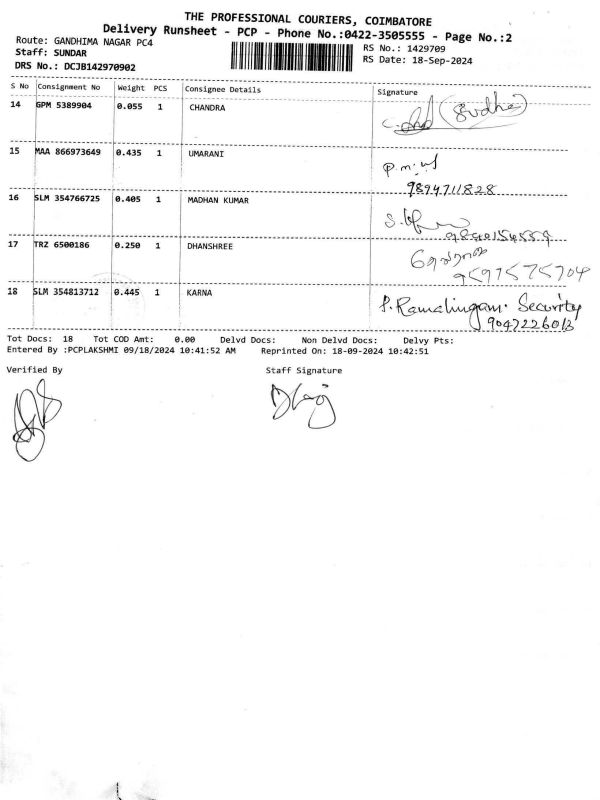 THE PROFESSIONAL COURIERS, COIMBATORE
Delivery Runsheet - PCP - Phone No.:0422-3505555 - Page No.:2
Route: GANDHIMA NAGAR PC4
RS No.: 1429709
Staff: SUNDAR
RS Date: 18-Sep-2024
DRS No.: DCJB142970902
S No Consignment No Weight PCS Consignee Details Signature
14 GPM 5389904 0.055 1 CHANDRA (Sudha)
15 MAA 866973649 0.435 1 UMARANI
9894711828
16 SLM 354766725 0.405 1 MADHAN KUMAR
17 TRZ 6500186 0.250 1 DHANSHREE
9597575704
18 SLM 354813712 0.445 1 KARNA P. Ramalingam. Security
9047226013
Tot Docs: 18 Tot COD Amt: 0.00 Delvd Docs: Non Delvd Docs: Delvy Pts:
Entered By :PCPLAKSHMI 09/18/2024 10:41:52 AM Reprinted On: 18-09-2024 10:42:51
Verified By Staff Signature